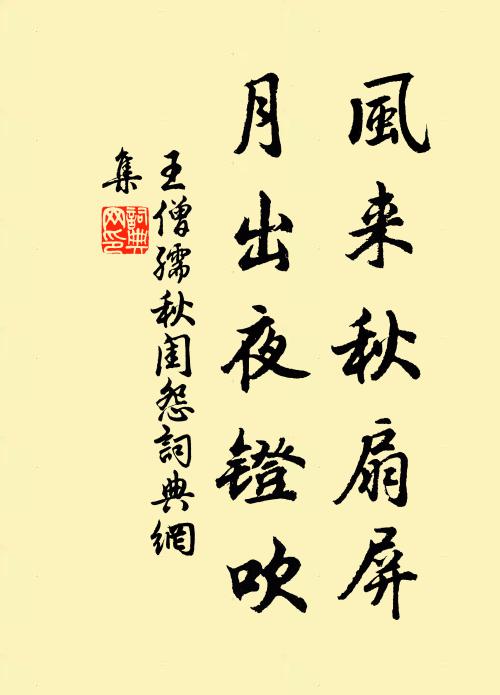 風来秋扇屏
月出夜鐙吹
王僧孺秋閨怨詞典網
集
詞典
网印